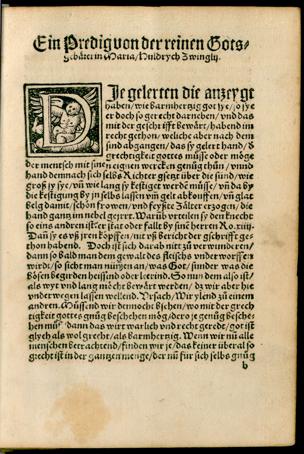 Ein Predig von der reinen Gots-
gebärerin Maria/Huldrych Zwinglij.
Die gelerten die anzeygt
haben/wie barmhertzig got sye/so sye
er doch so gerecht darneben/vnd das
mit der geschrifft bewärt/habend im
recht gethon/weliche aber nach dem
sünd abgangen/das sy gelert hand/d
grechtigkeit gottes müsse oder möge
der mentsch mit sinen eignen wercken gnůg thůn/vnnd
hand demnach sich selbs Richter gsetzt über die sünd/wie
groß sy sye/vñ wie lang sy kestiget werdẽ müsse/vñ da by
die kestigung by jn selbs lassen vm gelt abkouffen/vñ glat
belg damit/schön frowen/vnd feyßte Zälter erzogen/die
hand gantz im nebel geirrt. Warũb vrteilen sy den knecht
so eins andren ist? er stat oder fallt sy sinem herren Ro.xiiij.
Dañ sy es vß jren köpffen/nit vß bericht der gschrifft ge-
thon habend. Doch ist sich darab nitt zů verwundren/
dann so bald man dem geist des fleischs vnderworffen
wird/so sicht man nün an/was Got/sunder was die
Bösen begirden heissend oder leerind. So man dem also ist/
als wyt vnd lang möcht bewärt werden/dz wir aber hie
vnder wegen lassen wellend. Vrsach/Wir ylend zů einem
andren. Müssend wir democht sehen/wo mit der grech-
tigkeit gottes gnůg beschehen mög/dero je gnůg besche-
hen můß/dann das wirt warlich vnd recht geredt/got ist
glych als wol grecht/als barmhertzig. Wenn wir nũ alle
menschen betrachtend/finden wir je/das keiner überal so
grecht ist in der gantzen menge/der nũ für sich selbs gnůg
b